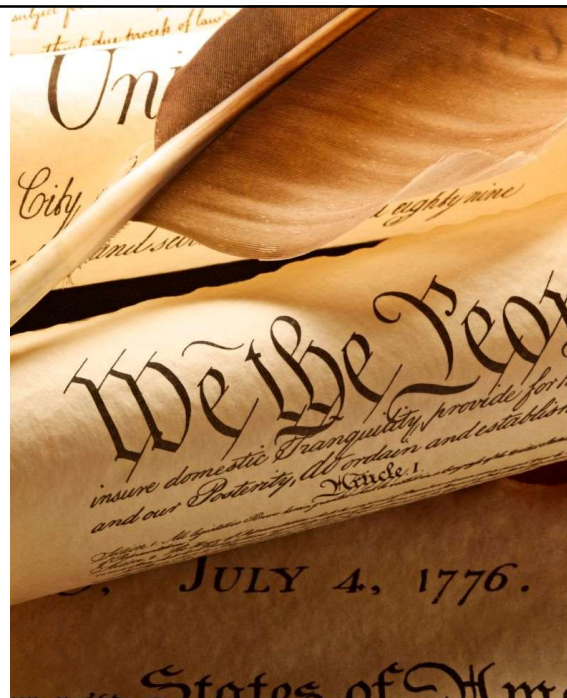 subject for
without due process of law
Uni
City
and sev
eighty nine
We the Peop
insure domestic Tranquility, provide for
and our Posterity, do ordain and establish
Article. I.
JULY 4, 1776.
States of Ame